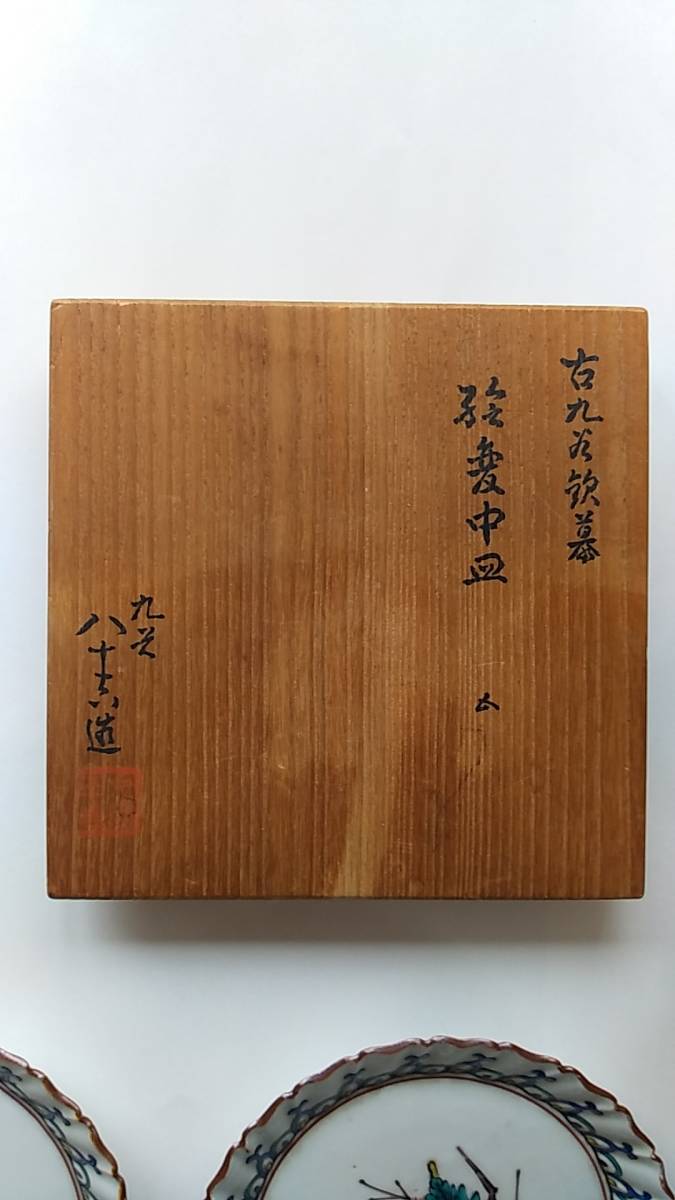 古九谷欽慕
絵変中皿
五
九谷
八十六造